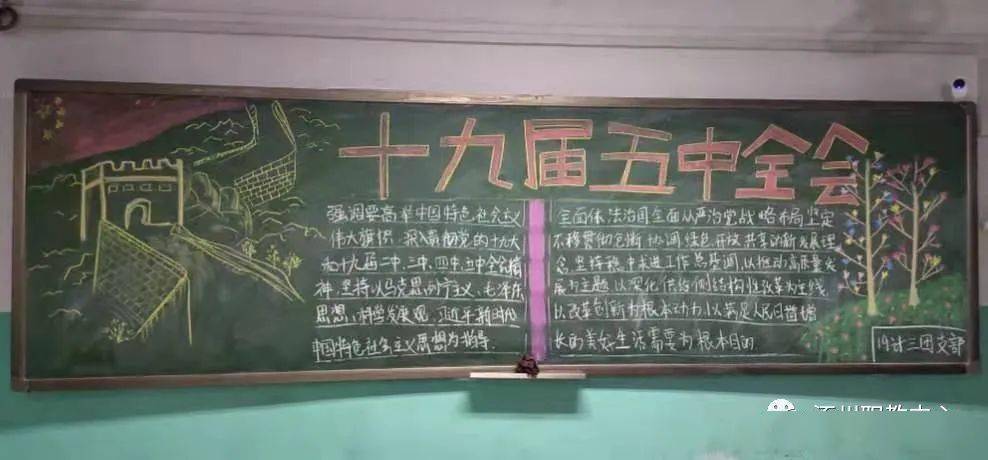 十九届五中全会
强调要高举中国特色社会主义
伟大旗帜,深入贯彻党的十九大
和十九届二中、三中、四中、五中全会精
神,坚持以马克思列宁主义、毛泽东
思想、科学发展观、习近平新时代
中国特色社会主义思想为指导.
全面依法治国全面从严治党战略布局坚定
不移贯彻创新 协调 绿色 开放 共享的新发展理
念,坚持稳中求进工作总基调,以推动高质量发
展为主题,以深化供给侧结构性改革为主线
以改革创新为根本动力,以满足人民日益增
长的美好生活需要为根本目的.
19计三团支部
涿州职教中心